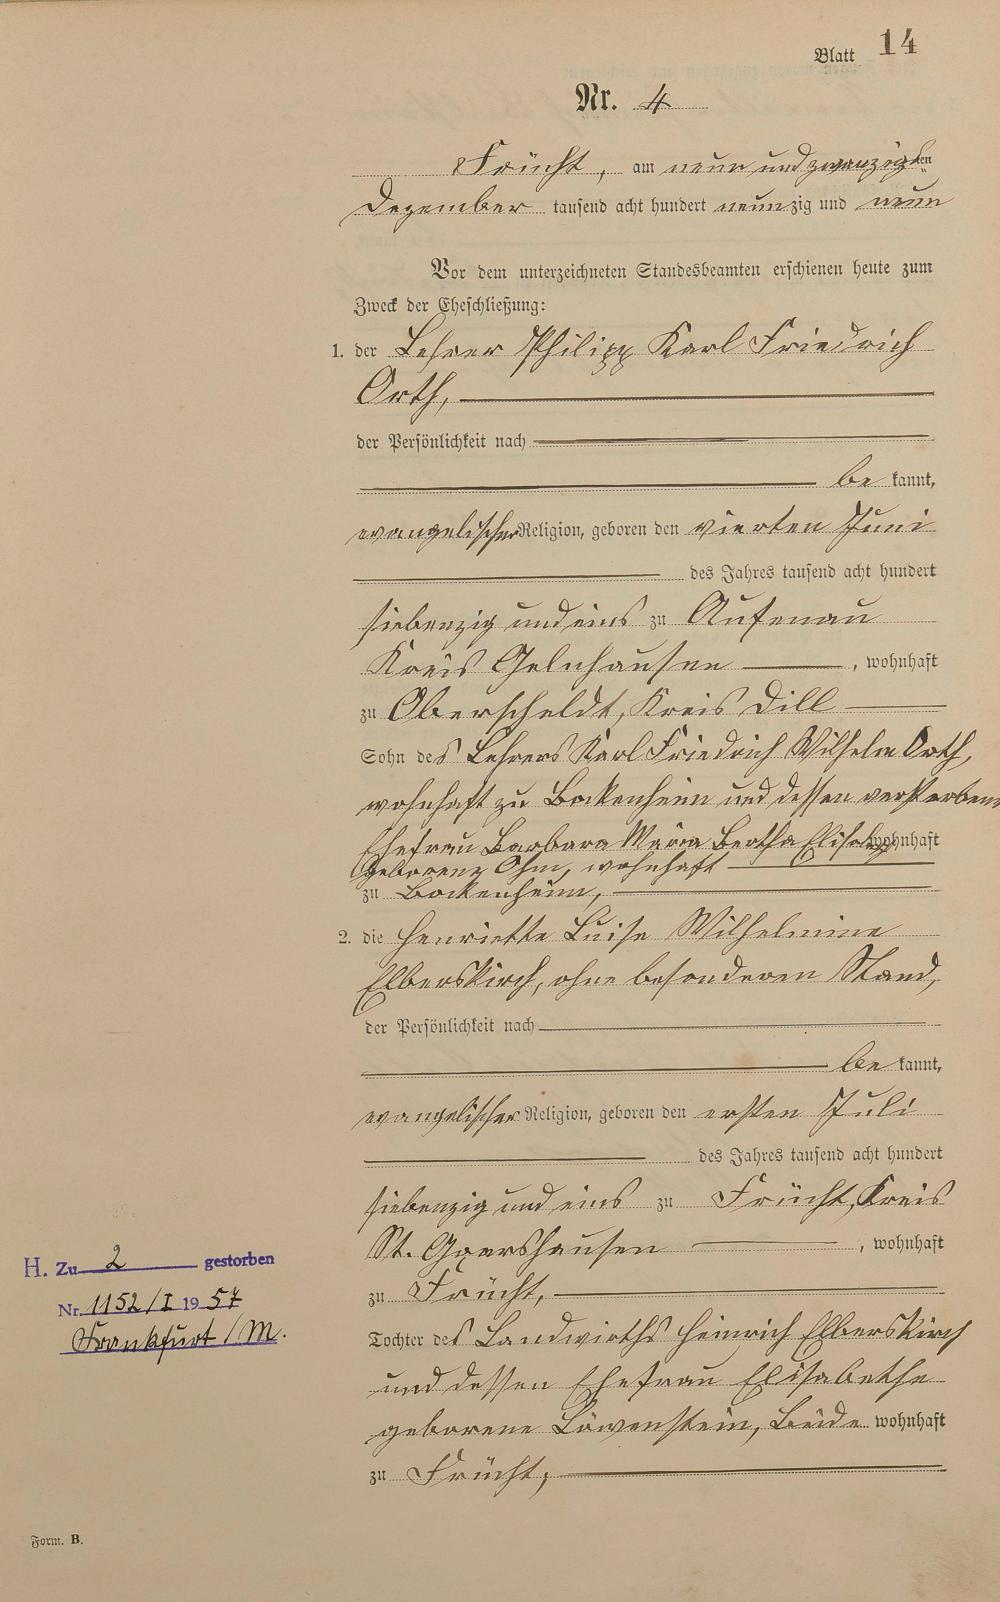 Blatt 14
Nr. 4
Frücht, am neun und zwanzigsten
Dezember tausend acht hundert neunzig und neun
Vor dem unterzeichneten Standesbeamten erschienen heute zum
Zweck der Eheschließung:
1. der Lehrer Philipp Karl Friedrich
Orth,
der Persönlichkeit nach
be kannt,
evangelischer Religion, geboren den vierten Juni
des Jahres tausend acht hundert
siebenzig und eins zu Aufenau
Kreis Gelnhausen, wohnhaft
zu Oberscheldt, Kreis Dill
Sohn des Lehrers Karl Friedrich Wilhelm Orth,
wohnhaft zu Bockenheim und dessen verstorbene
Ehefrau Barbara Maria Bertha Elisabeth wohnhaft
geborene Ohm, wohnhaft
zu Bockenheim,
2. die Henriette Luise Wilhelmine
Elberskirch, ohne besonderen Stand,
der Persönlichkeit nach
be kannt,
evangelischer Religion, geboren den ersten Juli
des Jahres tausend acht hundert
siebenzig und eins zu Frücht, Kreis
St. Goarshausen, wohnhaft
zu Frücht,
Tochter des Landwirths Heinrich Elberskirch
und dessen Ehefrau Elisabethe
geborene Löwenstein, Beide wohnhaft
zu Frücht,
H. Zu 2 gestorben
Nr. 1152/I 1957
Frankfurt/M.
Form. B.